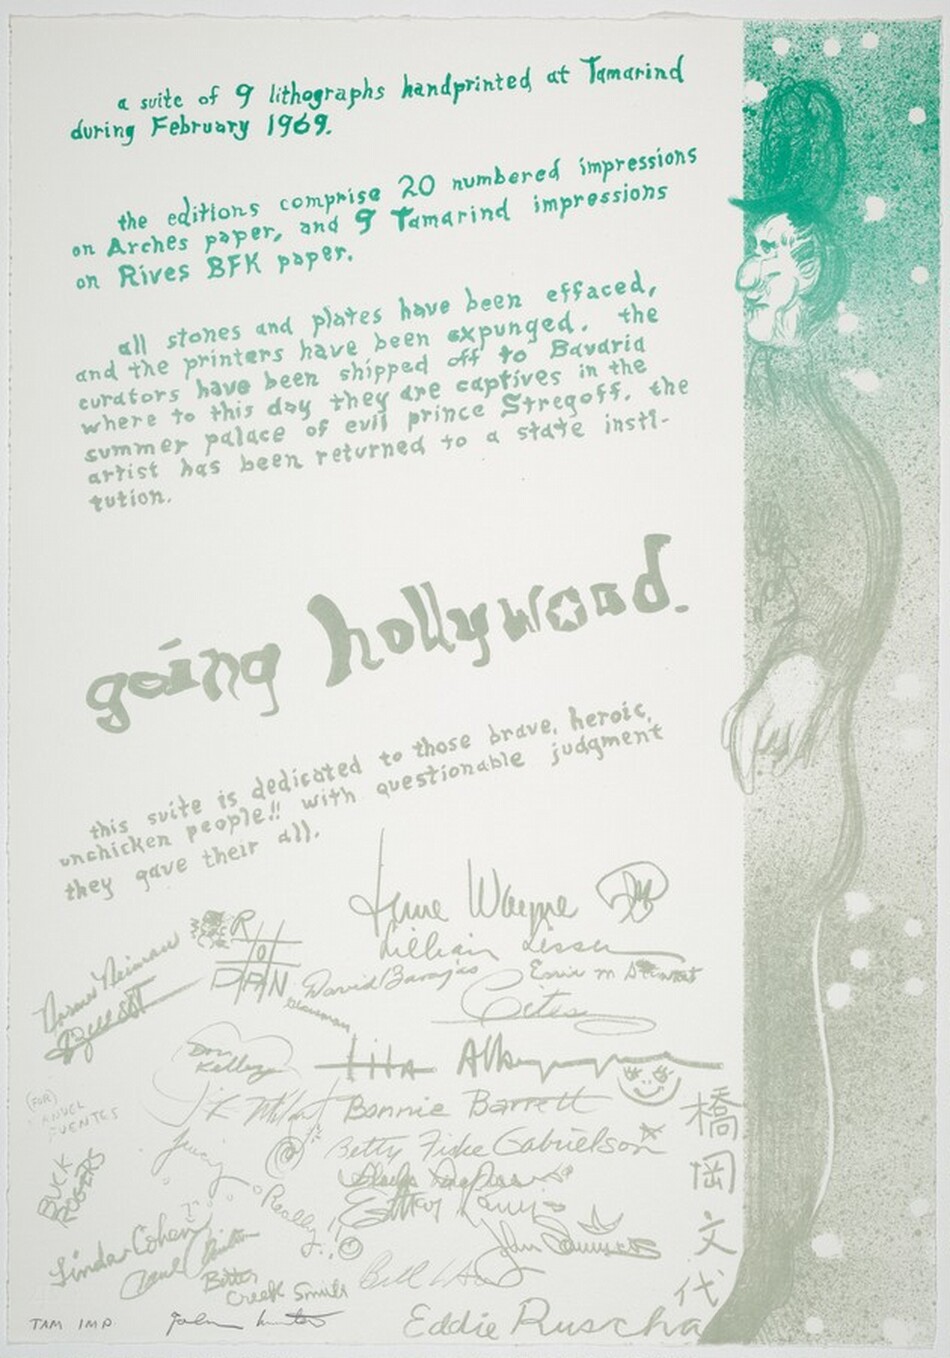 a suite of 9 lithographs handprinted at Tamarind
during February 1969.
the editions comprise 20 numbered impressions
on Arches paper, and 9 Tamarind impressions
on Rives BFK paper.
all stones and plates have been effaced,
and the printers have been expunged. the
curators have been shipped off to Bavaria
where to this day they are captives in the
summer palace of evil prince Stregoff. the
artist has been returned to a state insti-
tution.
going hollywood.
this suite is dedicated to those brave, heroic,
unchicken people!! with questionable judgment
they gave their all.
June Wayne
Lillian Lesser
David Barajas
Glassman
Don
Kelley
Bonnie Barrett
(FOR)
Betty Fiske Gabrielson
BUCK
ROGERS
Really!!
Linda Cohen
Bitter
Creek Smith
Bill
Eddie Ruscha
橋
岡
文
代
TAM IMP
John Hunter